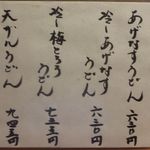 あげなすうどん 六三〇円
冷しあげなすうどん 六三〇円
冷し梅とろうどん 七三五円
天カルうどん 九四五円